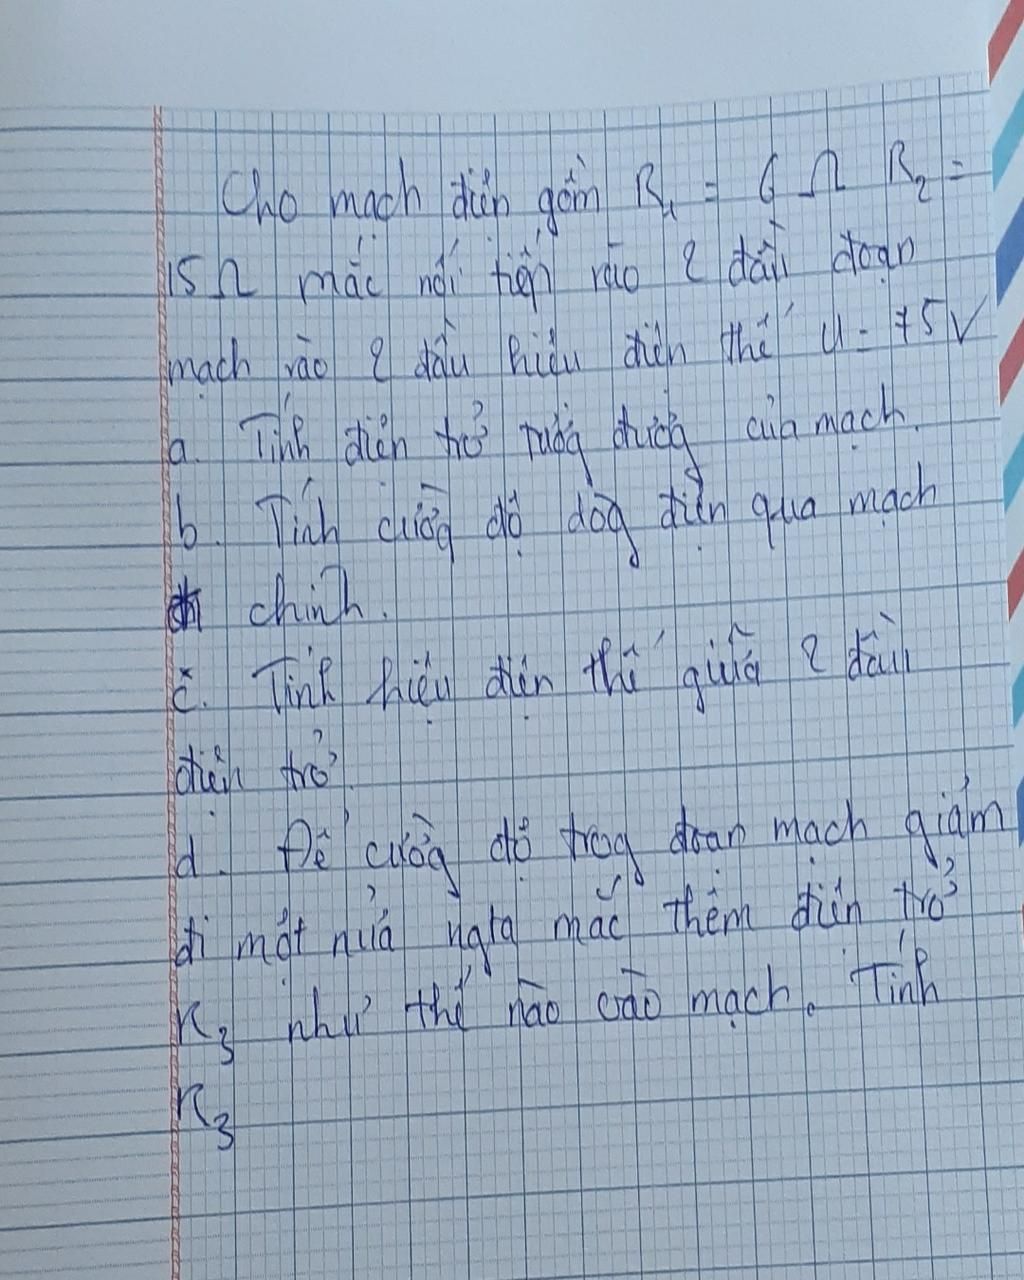 Cho mạch điện gồm R₁ = 6 Ω R₂ =
15 Ω mắc nối tiếp vào 2 đầu đoạn
mạch vào 2 đầu hiệu điện thế U = 75V
a. Tính điện trở tướg đươg của mạch.
b. Tính cườg độ dòg điện qua mạch
chính.
c. Tính hiệu điện thế giữa 2 đầu
điện trở.
d. Để cườg độ trog đoạn mạch giảm
đi một nửa ngta mắc thêm điện trở
R₃ như thế nào vào mạch. Tính
R₃